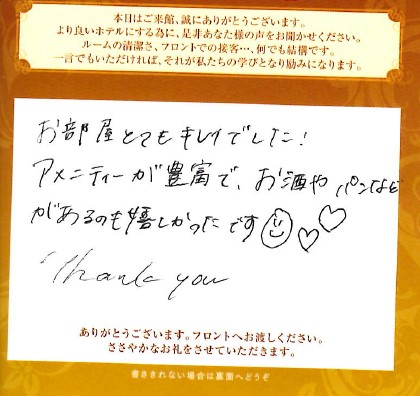 本日はご来館、誠にありがとうございます。
より良いホテルにする為に、是非あなた様の声をお聞かせください。
ルームの清潔さ、フロントでの接客…、何でも結構です。
一言でもいただければ、それが私たちの学びとなり励みになります。
お部屋とてもキレイでした!
アメニティーが豊富で、お酒や パンなど
があるのも嬉しかったです
Thank you
ありがとうございます。フロントへお渡しください。
ささやかなお礼をさせていただきます。
書ききれない場合は裏面へどうぞ